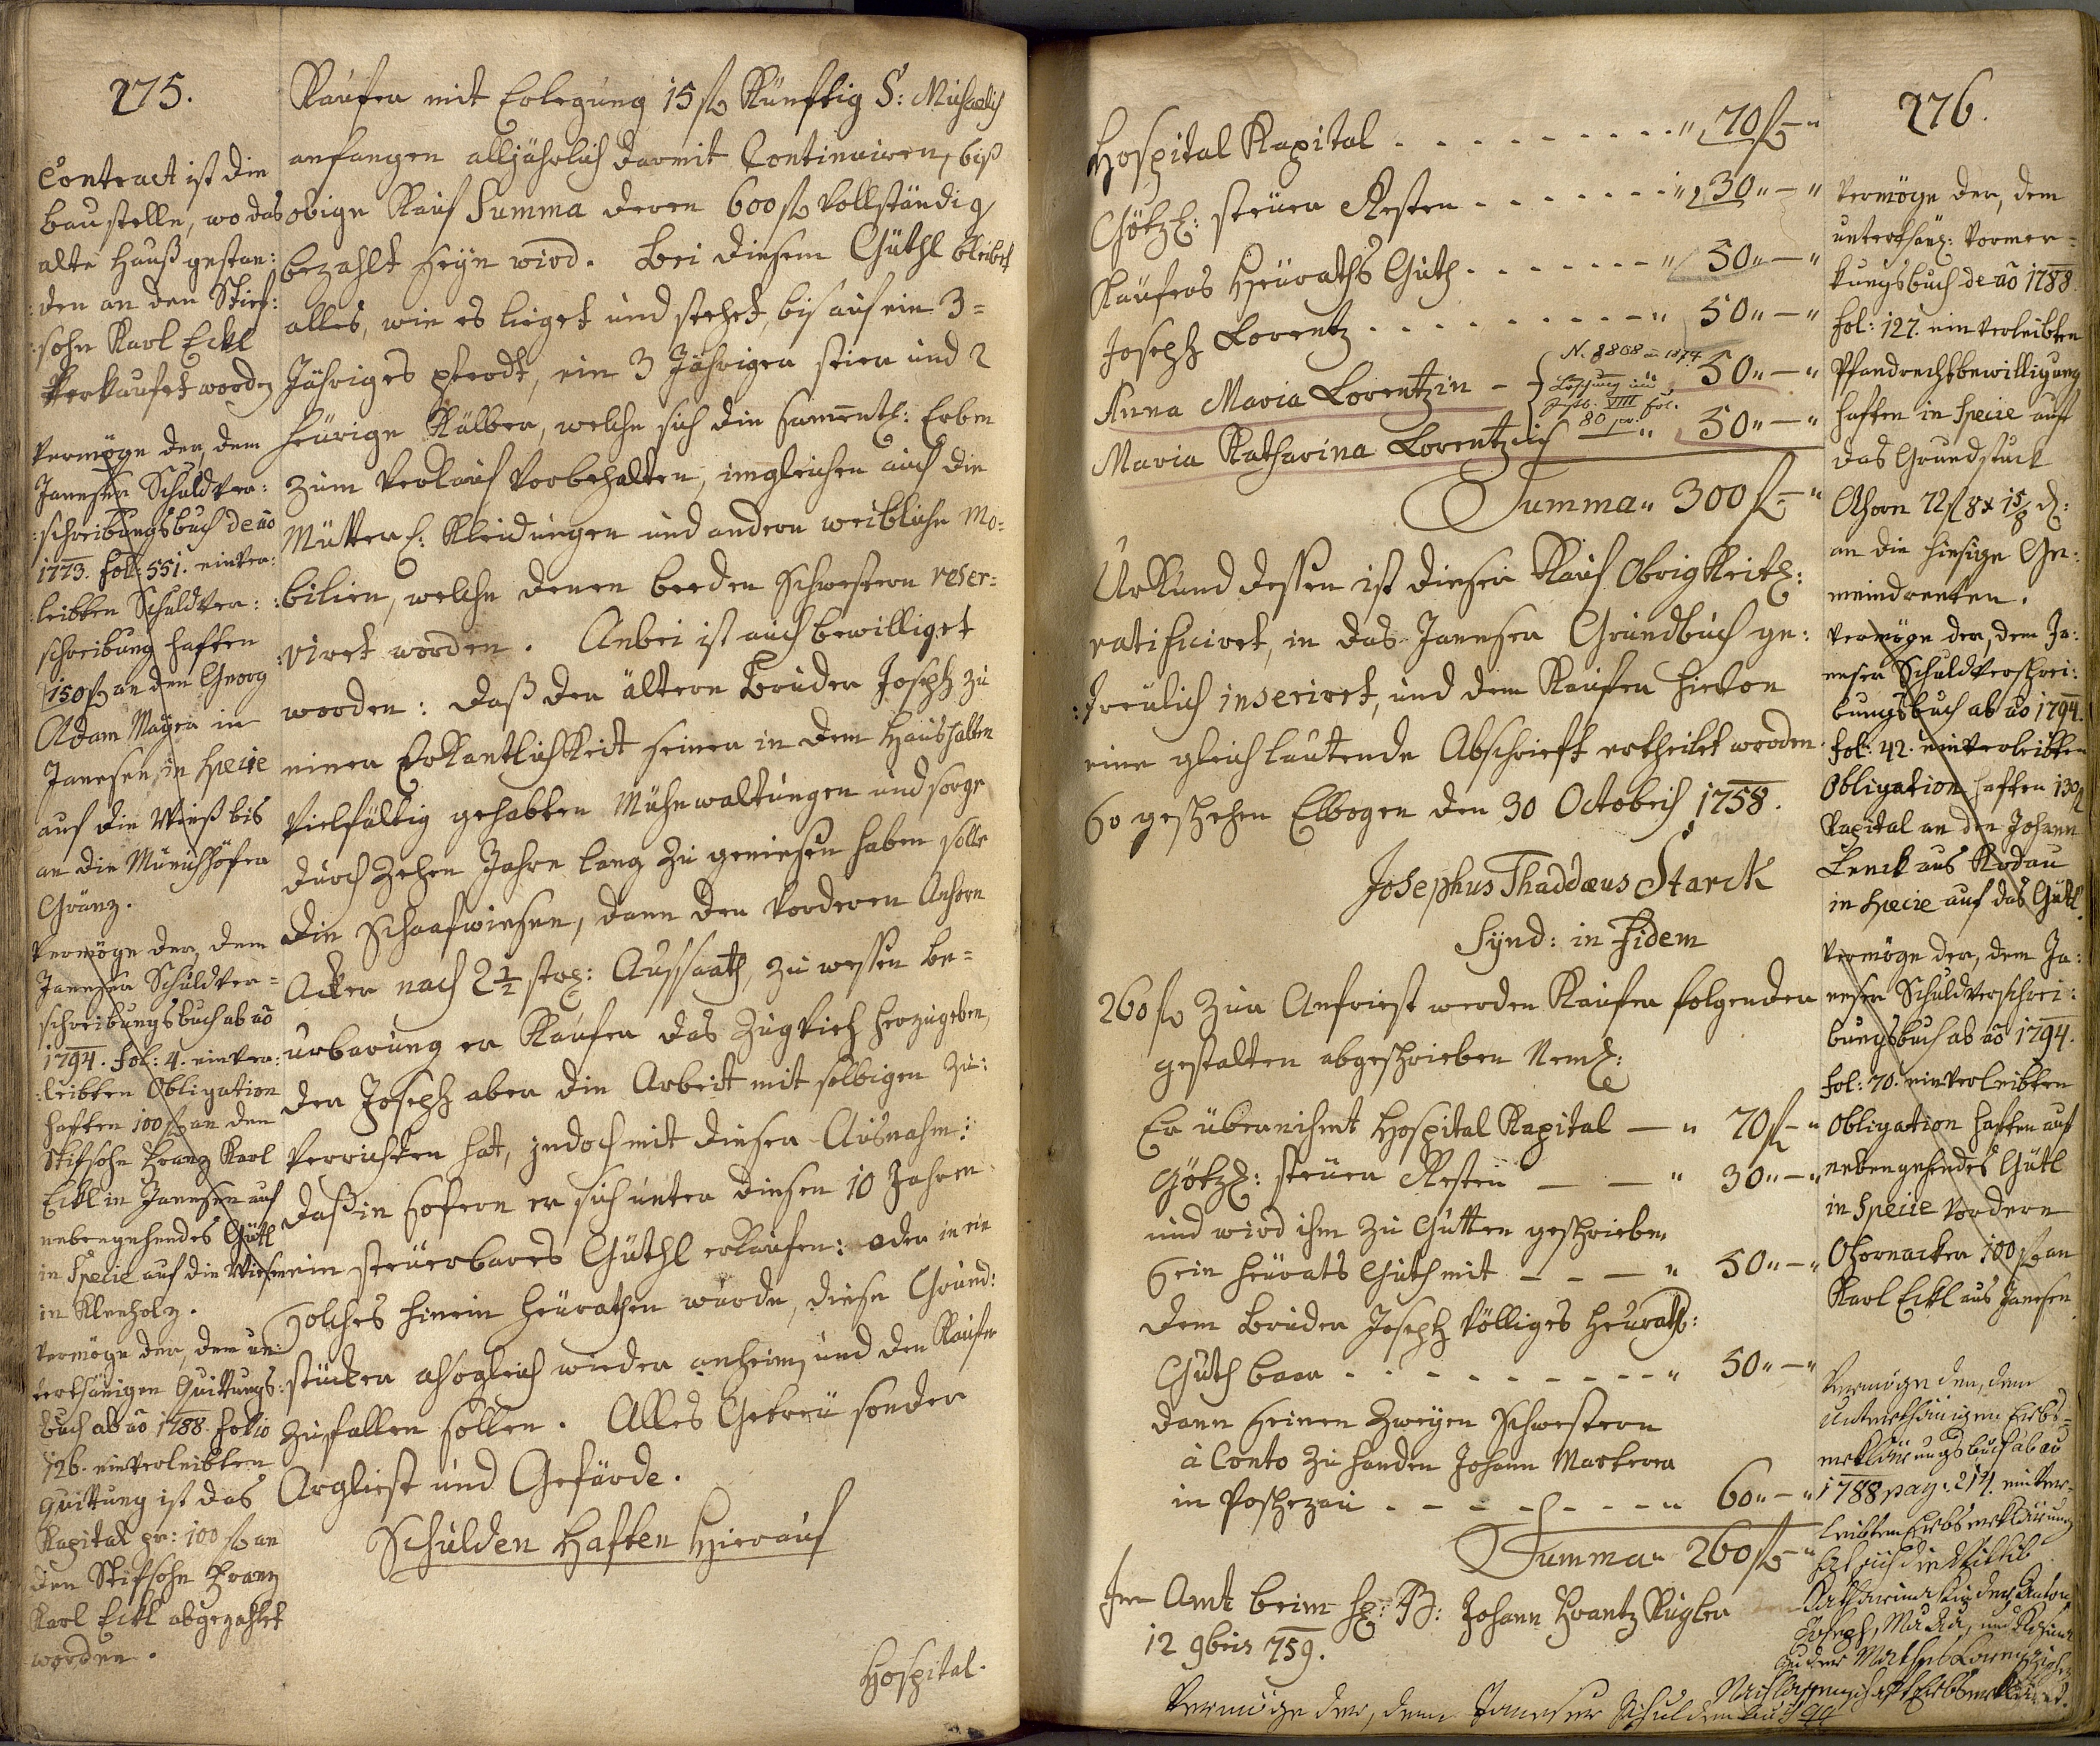 275.
Contract ist die
baustelle, wo das
alte Hauß gestan:
:den an den Stief:
:sohn Karl Eckl
Verkaufet worden
Vermöge der, dem
Janeser Schuldver:
:schreibungsbuch de ao
1773. fol: 551. einver:
:leibten Schuldver:
schreibung haften
150 f an den Georg
Adam Mayer in
Janesen, in specie
auf die Wieß bis
an die Münichhöfer
Gränz.
Vermöge der, dem
Janeser Schuldver=
schreibungsbuch ab ao
1794. fol: 4. einver:
:leibten Obligation
haften 100 f an den
Stifsohn Franz Karl
Eckl in Janesen auf
nebengehendes Gütl
in Specie auf die Wiesen
in Kleeholz.
Vermöge der, dem un:
terthänigen Quittungs:
buch ab ao 1788. folio
126. einverleibten
Quittung ist das
Kapital pr: 100 f an
den Stifsohn Franz
Karl Eckl abgezahlet
worden.
Kaufer mit Erlegung 15 f Künftig S: Michaelis
anfangen alljährlich darmit Continuiren, biß
obige Kauf Summa deren 600 f Vollständig
bezahlt seyn wird. Bei diesem Güthl bleibet
alles, wie es lieget und stehet, bis auf ein 3=
Jähriges pferdt, ein 3 Jähriger stier und 2
heurige Kälber, welche sich die sammentl: Erben
zum Verkauf Vorbehalten, imgleichen auch die
Mütterl: Kleidungen und andere weibliche Mo=
:bilien, welche denen beeden Schwestern reser=
:viret worden. Anbei ist auch bewilliget
worden: daß der ältere Bruder Joseph zu
einer Erkantlichkeit seiner in dem Haushalten
Vielfältig gehabten Mühewaltungen und sorge
durch Zehen Jahre lang zu geniesen haben solle
die Schaafwiesen, dann den Vorderen Ahorn
Acker nach 2 1/2 str: Aussaath, zu wessen be=
urbarung er Kaufer das Zugvieh herzugeben,
der Joseph aber die Arbeit mit selbigen zu:
Verrichten hat, jedoch mit dieser Ausnahm:
daß in sofern er sich unter diesen 10 Jahren
ein steuerbares Güthl erkaufen: oder in ein
solches hinein heurathen wurde, diese Grund:
stücker alsogleich wieder anheim, und den Kaufer
zufallen sollen. Alles Getreü sonder
Arglist und Gefärde.
Schulden Haften Hierauf
Hospital.
276.
Hospital Kapital . . . . . . . . . " 70 f – "
Götzl: steuer Resten . . . . . . " 30 " – "
Kaufers Heuraths Guth . . . . . . " 50 " – "
Joseph Lorentz . . . . . . . . . " 50 " – "
N. 8868 an 1874.
Anna Maria Lorentzin – 50 " – "
Löschung im
VIII fol.
80
Maria Katharina Lorentzin " 50 " – "
Summa " 300 f – "
Urkund dessen ist dieser Kauf Obrigkeitl:
ratificiret, in das Janeser Grundbuch ge:
:treulich inseriret, und dem Kaufer hievon
eine gleichlautende Abschrieft ertheilet worden.
So geschehen Elbogen den 30 Octobris 1758.
Josephus Thaddæus Starck
Synd: in Fidem
260 f zur Anfriest werden Kaufer folgender
gestalten abgeschrieben Neml:
Er übernihmt Hospital Kapital – " 70 f – "
Götzl: steuer Resten – – " 30 " – "
und wird ihm zu Gutten geschrieben
Sein heurats Guth mit – – – " 50 " – "
dem Bruder Joseph Völliges heurath:
Guth baar . . . . . . . . . " 50 " – "
dann seinen zweyen Schwestern
à Conto zu handen Johann Markerer
in Poschezau . . . . . . . " 60 " – "
Summa " 260 f – "
Im Amt beim H: B: Johann Frantz Kugler
12 9bris 759.
Vermöge der, dem Janeser Schuldenbuch
Vermöge der, dem
unterthänl: Vormer=
kungsbuch de ao 1788.
fol: 127. einverleibten
Pfandrechtsbewilligung
haften in specie auf
das Grundstuck
Ahorn 72 f 8 x 1 5/8 d:
an die hiesige Ge:
meindrenten.
Vermöge der, dem Ja:
neser Schuldverschrei:
bungsbuch ab ao 1794.
fol: 42. einverleibten
Obligation haften 130 f
Kapital an den Johann
Lenck aus Rodau
in specie auf das Gütl.
Vermöge der, dem Ja:
neser Schuldverschrei:
bungsbuch ab ao 1794.
fol: 70. einverleibten
Obligation haften auf
nebengehendes Gütl
in Specie Vordere
Ahornacker 100 f an
Karl Eckl aus Janesen.
Vermöge der, dem
Unterthänigen Erbs=
erklärungsbuch ab ao
1788 pag. 214. einver=
leibten Erbserklärung
Katharina
Joseph, Maria, und
Nachlassenschaft Erbserkläret.